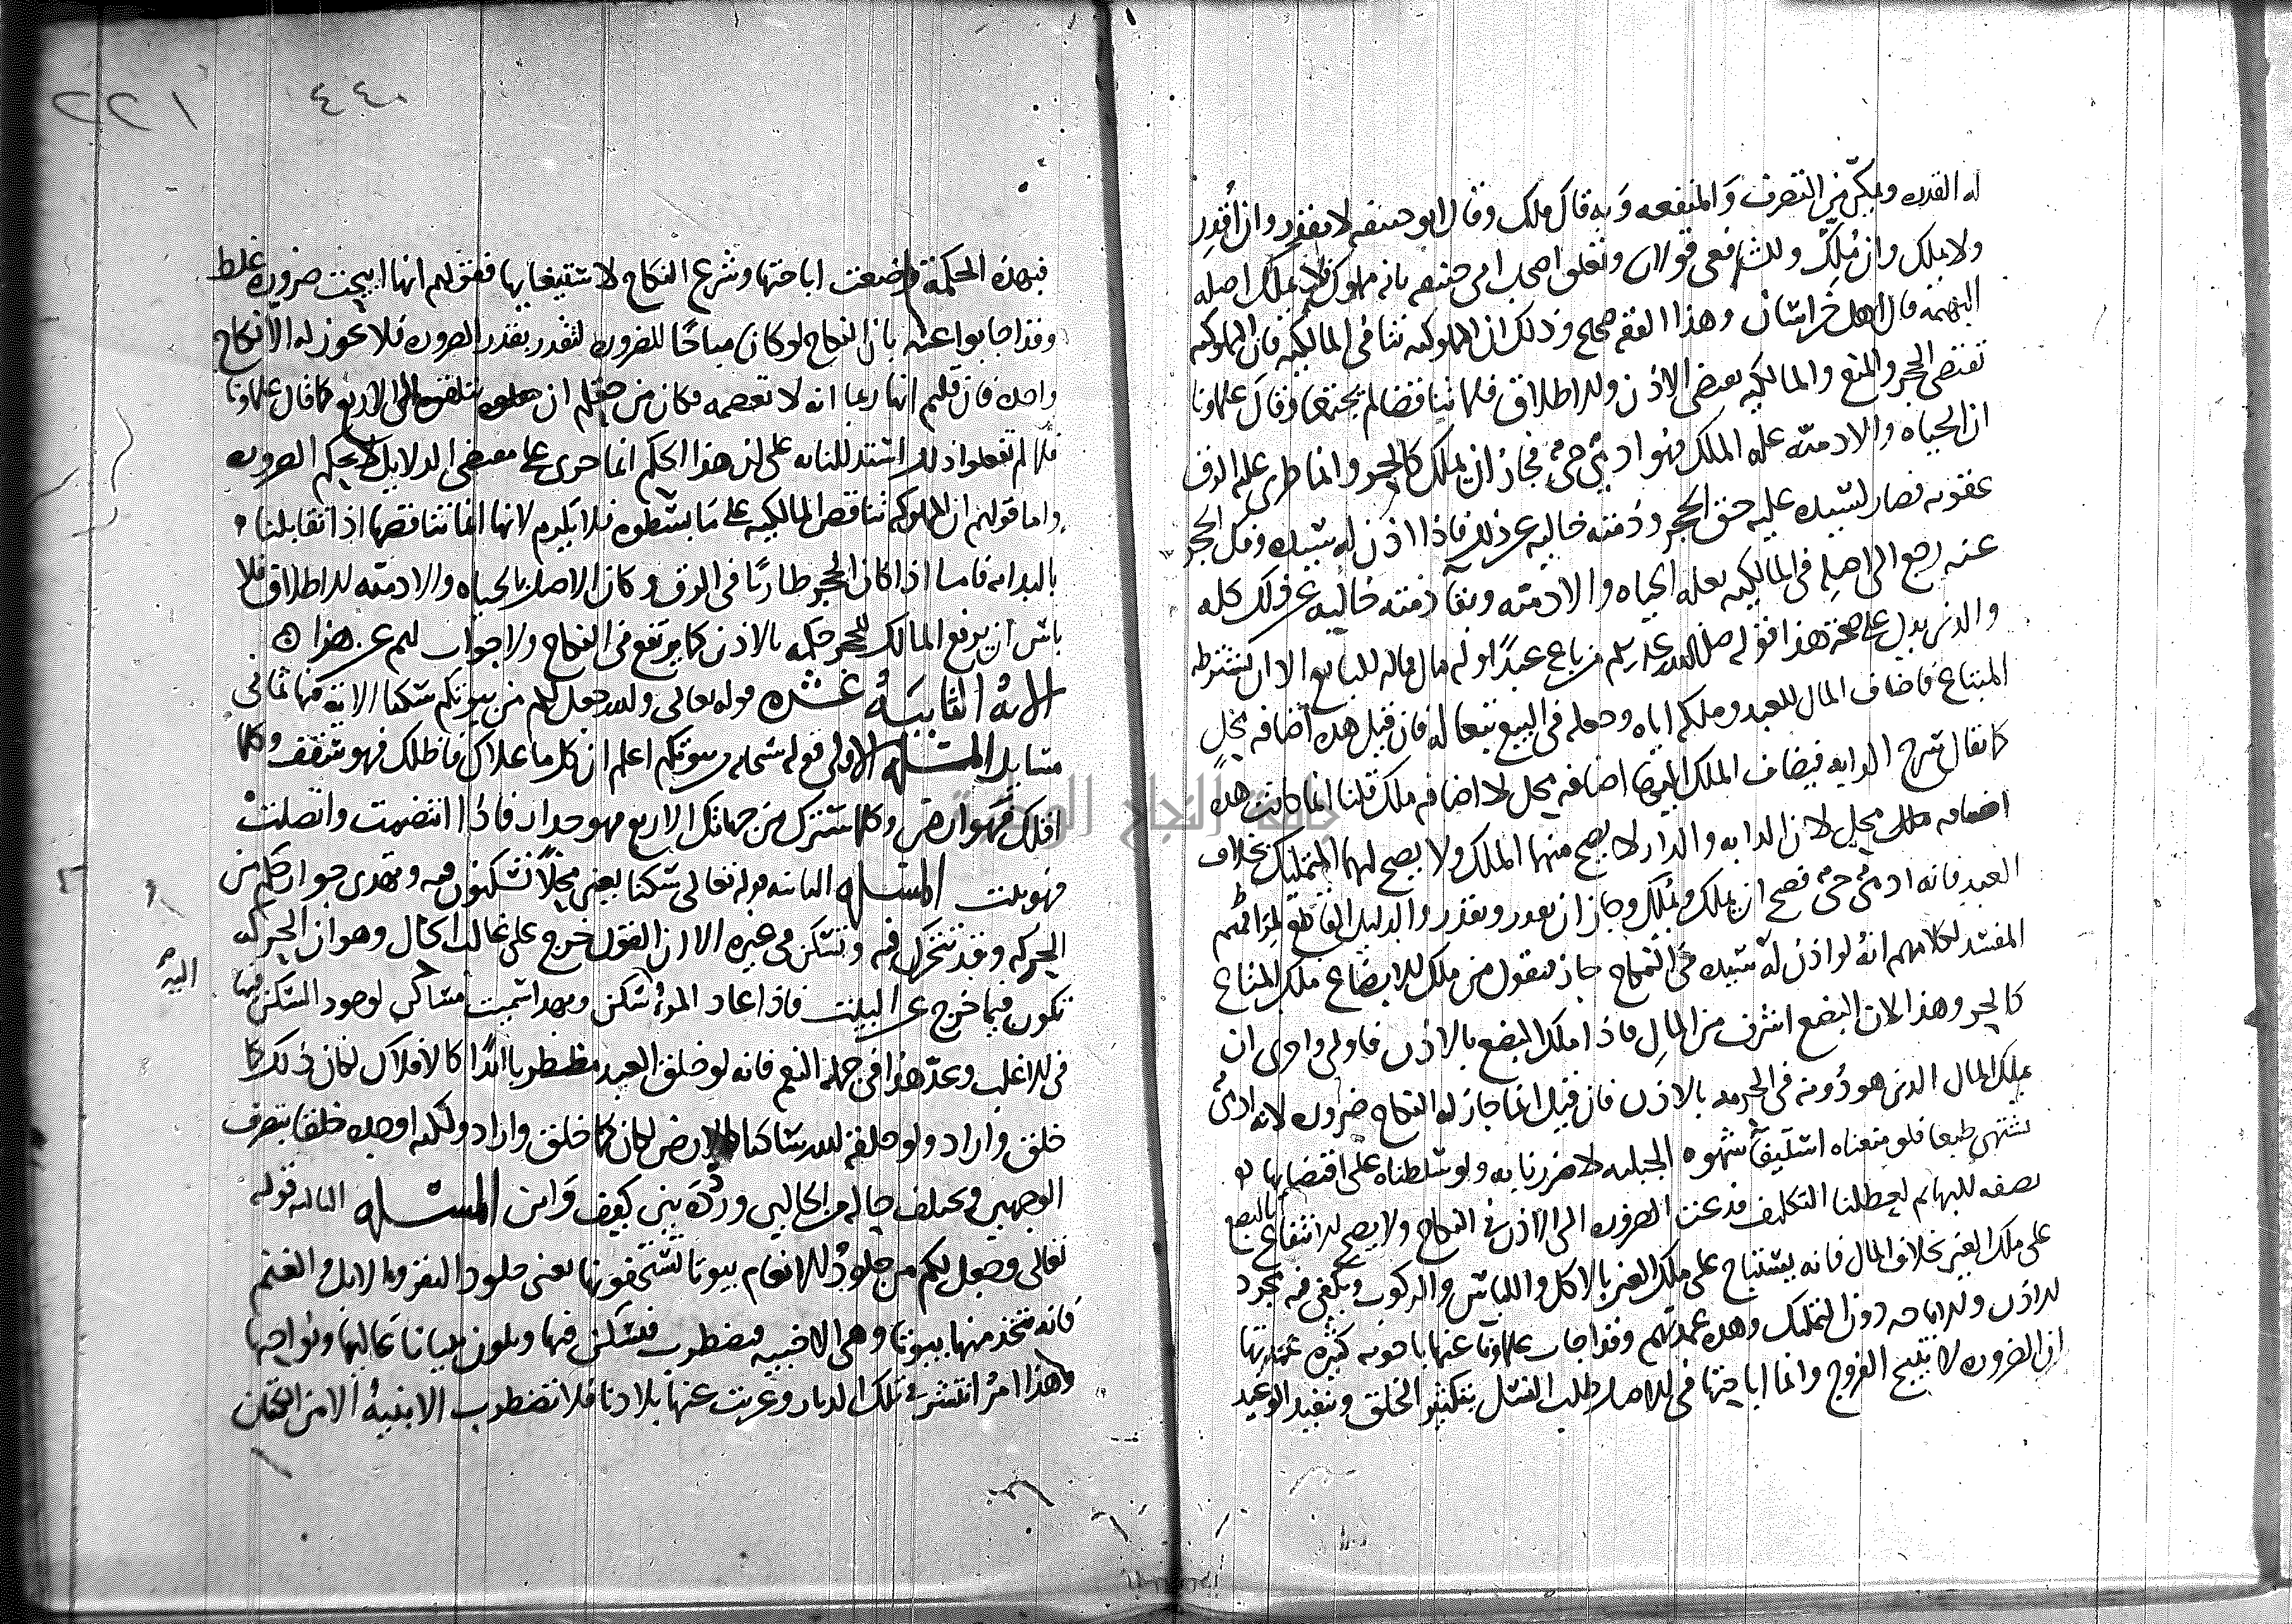 له القدره ويمكن من التصرف والمنفعه وبه قال ملك وقال ابو حنيفه لا يقدر وان اقدر
ولا يملك وان مُلِّك وللشافعى قولان وتعلق اصحاب ابى حنيفه بانه مملوك فلا يملك اصله
البهيمه قال اهل خراسان وهذا الفقه صحيح وذلك ان المملوكيه تنافى المالكيه فان المملوكيه
تقتضى الحجر والمنع والمالكيه تقتضى الاذن والاطلاق فلما تناقضا لم يجتمعا وقال علماونا
ان الحياه والادميه عله الملك فهو ادمي حي فجاز ان يملك كالحر وانما طرى عليه الرق
عقوبه فصار لسيده عليه حق الحجر وذمته خاليه عن ذلك فاذا اذن له سيده وفك الحجر
عنه رجع الى اصله فى المالكيه بعله الحياه والادميه وبقآ ذمته خاليه عن ذلك كله
والذى يدل على صحة هذا قوله صلى الله عليه وسلم من باع عبدًا وله مال فماله للبايع الا ان يشترطه
المبتاع فاضاف المال للعبد وملكه اياه وجعله فى البيع تبعا له فان قيل هذه اضافه محل
كما يقال سرج الدابه فيضاف الملك اليها اضافه محل لا اضافه ملك قلنا انما كانت هذه
اضافه محل لان الدابه والدار لا يصح منهما الملك ولا يصح لهما التمليك بخلاف
العبد فانه ادمي حي فصح ان يملك ويُملَّك وجاز ان يقدر ويقدر والدليل القاطع لمزاعمهم
المفسد لكلامهم انه لو اذن له سيده فى النكاح جاز فنقول من ملك الابضاع ملك المتاع
كالحر وهذا لان البضع اشرف من المالِ فاذا ملك البضع بالاذن فاولى واحرى ان
يملك المال الذى هو دونه فى الحرمه بالاذن فان قيل انما جاز له النكاح ضروره لانه ادمي
يشتهى طبعا فلو منعناه استيفآ شهوه الجبليه لاضررنا به ولو سلطناه على اقتضايها
بصفه البهايم لعطلنا التكليف فدعت الضروره الى الاذن فى النكاح ولا يصح الانتفاع بالبضع
على ملك الغير بخلاف المال فانه يستباح على ملك الغير بالاكل واللباس والركوب ويكفى فيه مجرد
الاذن والاباحه دون التمليك وهذه عمدتهم وقد اجاب علماونا عنها باجوبه كثيره عمدتها
ان الضروره لا تبيح الفروج وانما اباحتها فى الاصل طلب النسل بتكثير الخلق وتنفيذ الوعيد
٢٢١ ٤٤٠
فبهذه الحكمة وضعت اباحتها وشرع النكاح لاستبقايها فقولهم انها ابيحت ضروره غلط
وقد اجابوا عنه بان النكاح لو كان مباحًا للضروره لتقدر بقدر الضروره فلا يجوز له الا نكاح
واحده فان قلتم انها ربما انه لا تعصمه فكان من حقكم ان الى الاربع كما قال علماونا
فلما لم تفعلوا ذلك استدللنا به على ان هذا الحكم انما جرى على مقتضى الدلايل لا بحكم الضروره
واما قولهم ان المملوكيه تناقض المالكيه على ما بسطوه فلا يلزم لانها انما تناقضها اذا تقابلتا
بالبدايه فاما اذا كان الحجر طاريًا فى الرق وكان الاصل بالحياه والادميه الاطلاق فلا
باس ان يرفع المالك للحجر حكمه بالاذن كما يرتفع فى النكاح ولا جواب لهم عن هذا
الايهُ الثانيَهُ عَشره قوله تعالى والله جعل لكم من بيوتكم سكنا الايه فيها ثمانى
مسايل المساله الاولى قوله سبحانه من بيوتكم اعلم ان كل ما علاك فاظلك فهو سقف وكلما
اقلك فهو ارض وكلما سترك من جهاتك الاربع فهو جدار فاذا انتضمت واتصلت
فهو بيت المساله الثانيه قوله تعالى سكنا يعنى محلًا تسكنون فيه وتهدى جوارحكم من
الحركه وقد تتحرك فيه وتسكن فى غيره الا ان القول خرج على غالب الحال وهو ان الحركه
تكون فيما خرج عن البيت فاذا عاد المرءُ اليه سكن وبهذا سميت مساكن لوجود السكن فيها
فى الاغلب وعدّ هذا فى جمله النعم فانه لو خلق العبد مضطربا ابدًا كالافلاك لكان ذلك كما
خلق واراد ولو خلقه الله ساكنا كالارض لكان كما خلق واراد ولكنه اوجده خلقا يتصرف
الوجهين ويختلف حاله من الحالين وردّده بين كيف واين المساله الثالثه قوله
تعالى وجعل لكم من جلود الانعام بيوتا تستخفونها يعنى جلود البقر والابل والغنم
فانه يتخذ منها بيوتا وهى الاخبيه فتضطرب فيسكن فيها ويكون بنيانا عاليها ونواحيها
وهذا امر انتشر فى تلك الديار وعريت عنها بلادنا فلا تضطرب الابنيهُ الا من الكتان